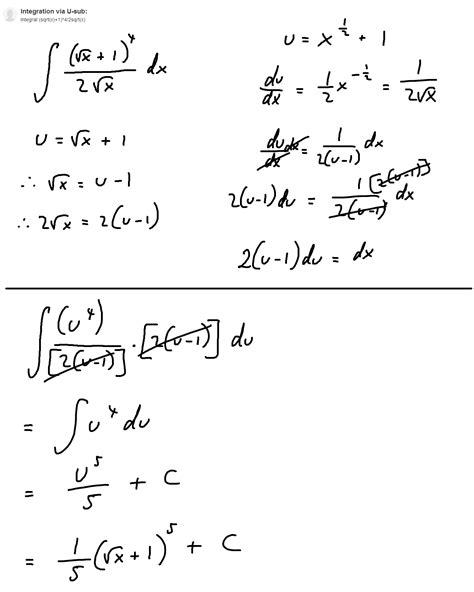 Integration via U-sub:
Integral (sqrt(x)+1)^4/2sqrt(x)
∫ (√x + 1)^4 / 2√x dx
u = √x + 1
∴ √x = u - 1
∴ 2√x = 2(u-1)
u = x^(1/2) + 1
du/dx = 1/2 x^(-1/2) = 1/(2√x)
du/dx dx = 1/(2(u-1)) dx
2(u-1)du = 1[2(u-1)]/(2(u-1)) dx
2(u-1)du = dx
∫ (u^4)/[2(u-1)] · [2(u-1)] du
= ∫ u^4 du
= u^5/5 + C
= 1/5 (√x + 1)^5 + C